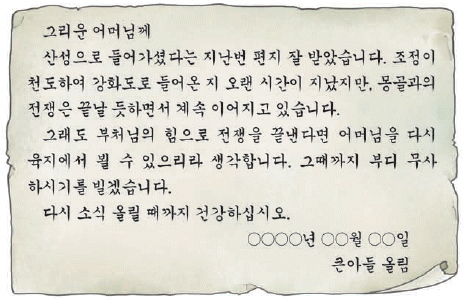 그리운 어머님께
산성으로 들어가셨다는 지난번 편지 잘 받았습니다. 조정이
천도하여 강화도로 들어온 지 오랜 시간이 지났지만, 몽골과의
전쟁은 끝날 듯하면서 계속 이어지고 있습니다.
그래도 부처님의 힘으로 전쟁을 끝낸다면 어머님을 다시
육지에서 뵐 수 있으리라 생각합니다. 그때까지 부디 무사
하시기를 빌겠습니다.
다시 소식 올릴 때까지 건강하십시오.
○○○○년 ○○월 ○○일
큰아들 올림